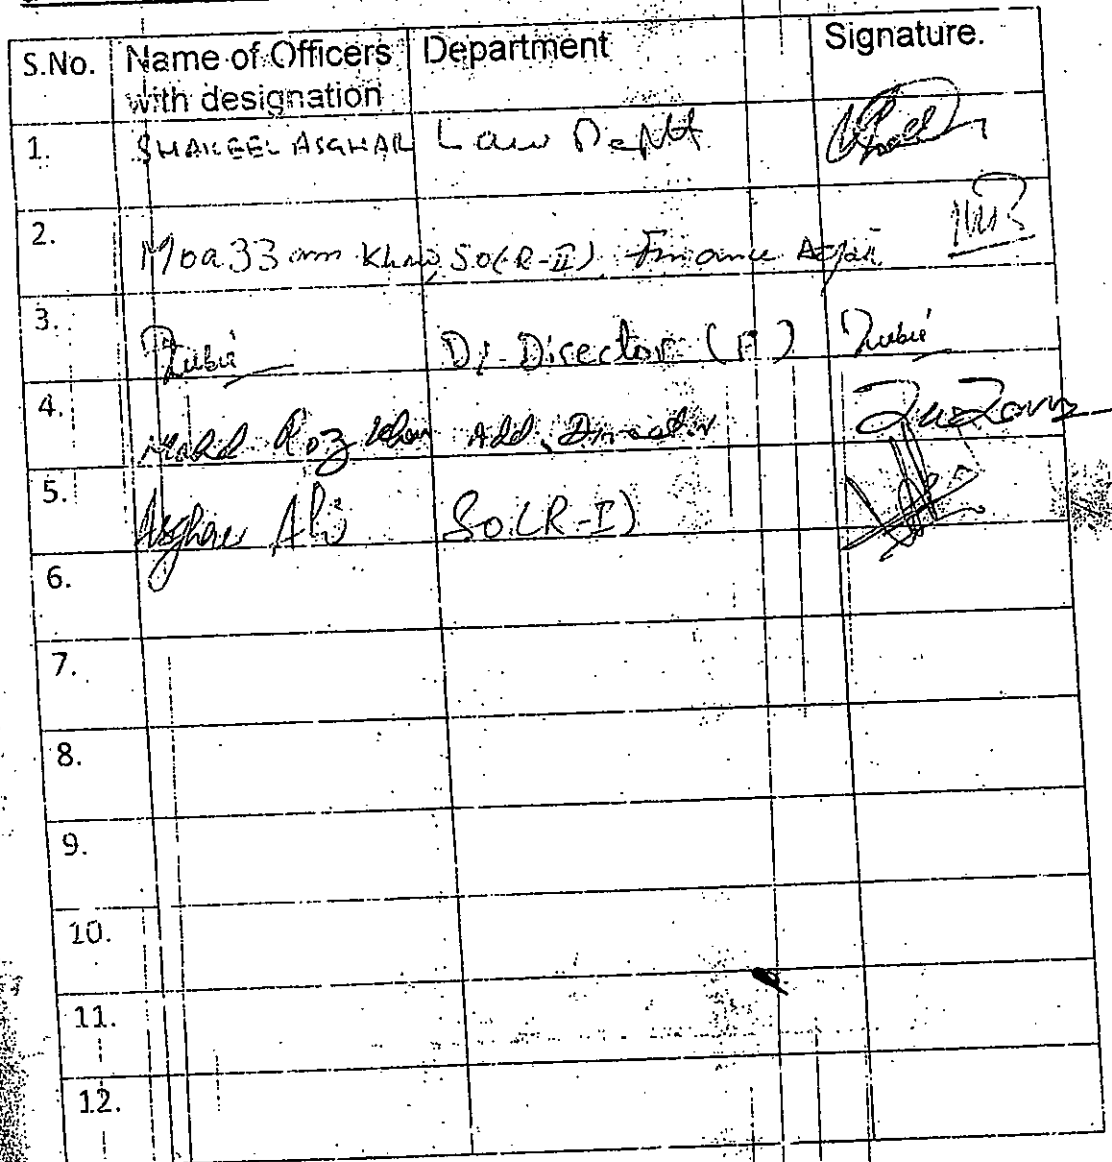 S.No. Name of Officers with designation Department Signature.
1. SHAKEEL ASGHAR Law Deptt
2. Moa33am Khan, SO(R-II) Finance
3. Dy. Director (P)
4. Khan Add, Director
5. Asghar Ali SO(R-I)
6.
7.
8.
9.
10.
11.
12.